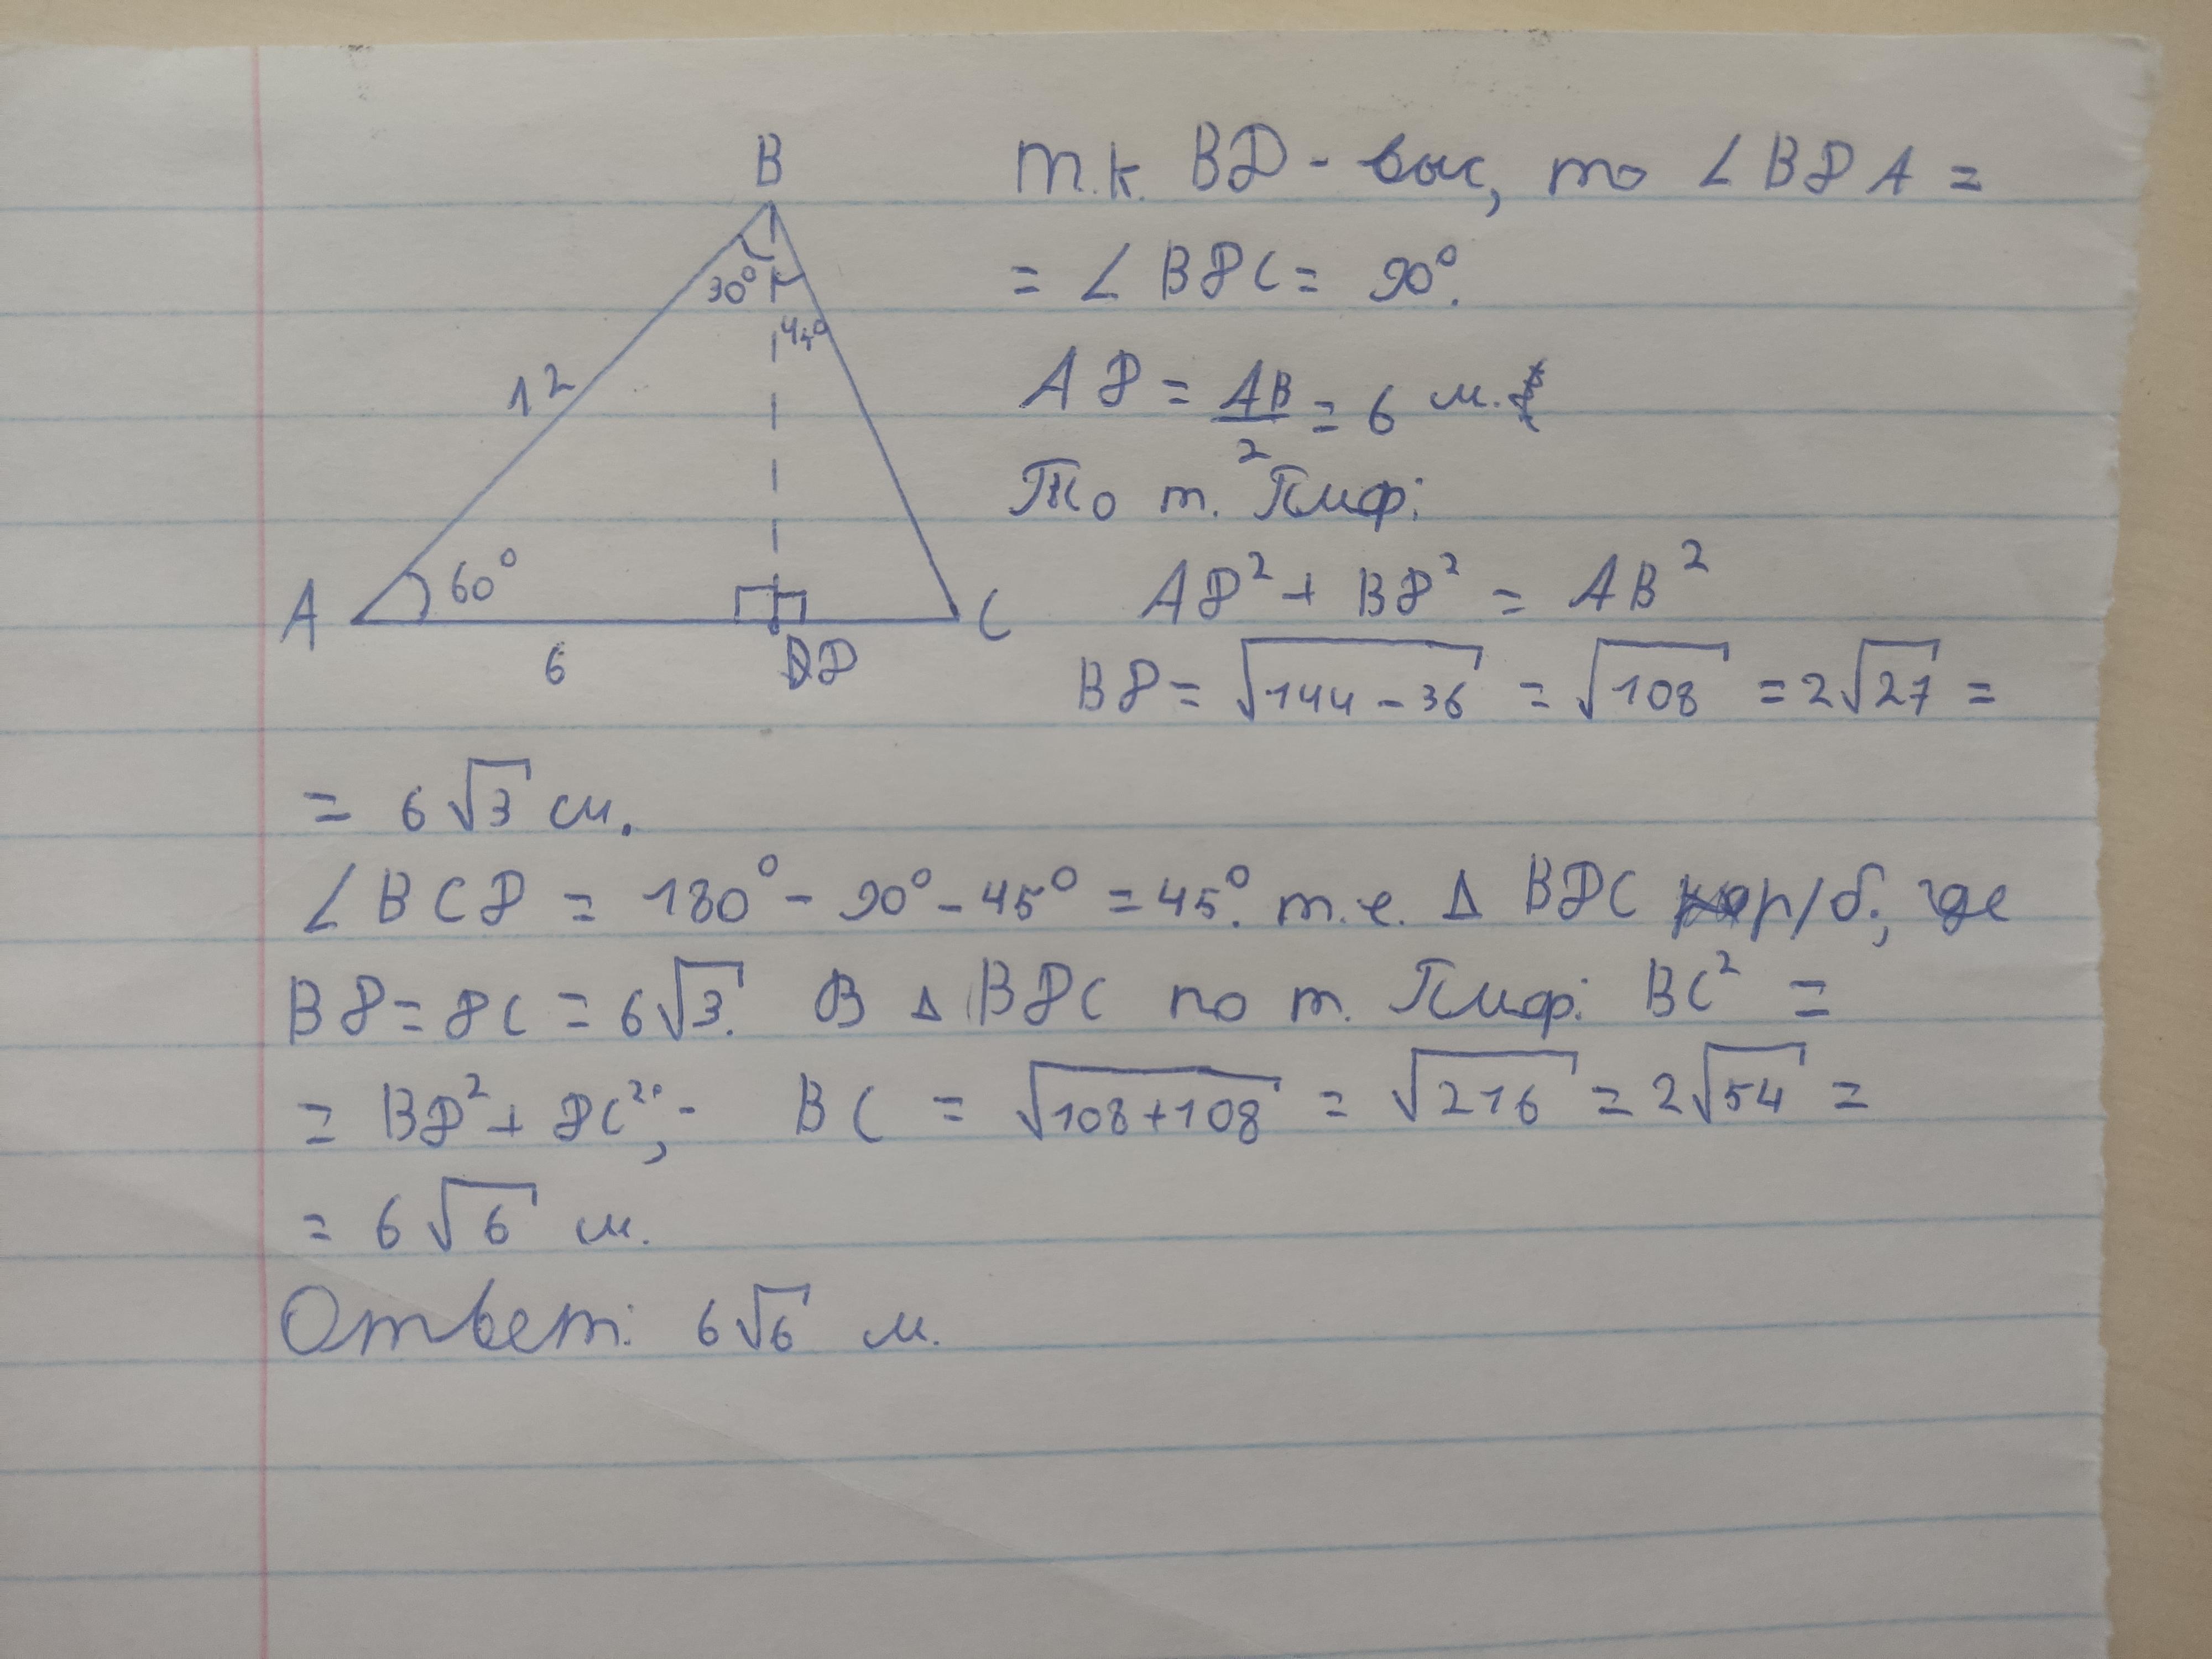 B
30°
45°
12
A 60° C
6 D
т.к. BD - выс, то ∠BDA =
= ∠BDC = 90°.
AD = AB/2 = 6 м.
По т. Пиф:
AD² + BD² = AB²
BD = √144 - 36 = √108 = 2√27 =
= 6√3 см.
∠BCD = 180° - 90° - 45° = 45°. т.е. Δ BDC р/б, где
BD = DC = 6√3. В Δ BDC по т. Пиф: BC² =
= BD² + DC²; BC = √108+108 = √216 = 2√54 =
= 6√6 м.
Ответ: 6√6 м.